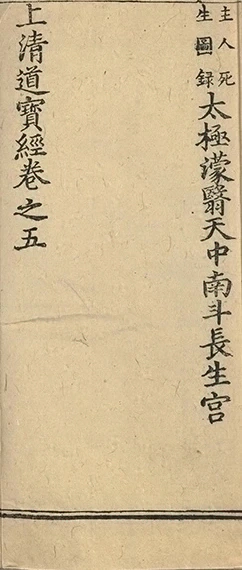 主人死
生圖録
太極濛翳天中南斗長生宮
上清道寶經卷之五